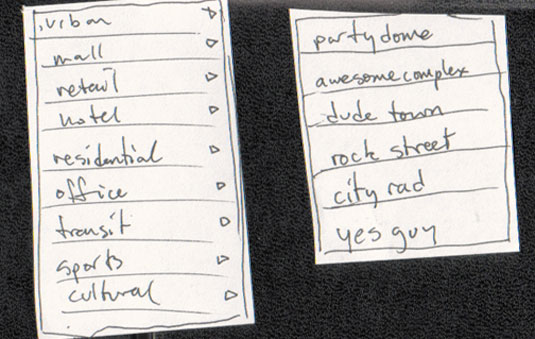 urban
mall
retail
hotel
residential
office
transit
sports
cultural
partydome
awesomecomplex
dude town
rock street
city rad
yes guy